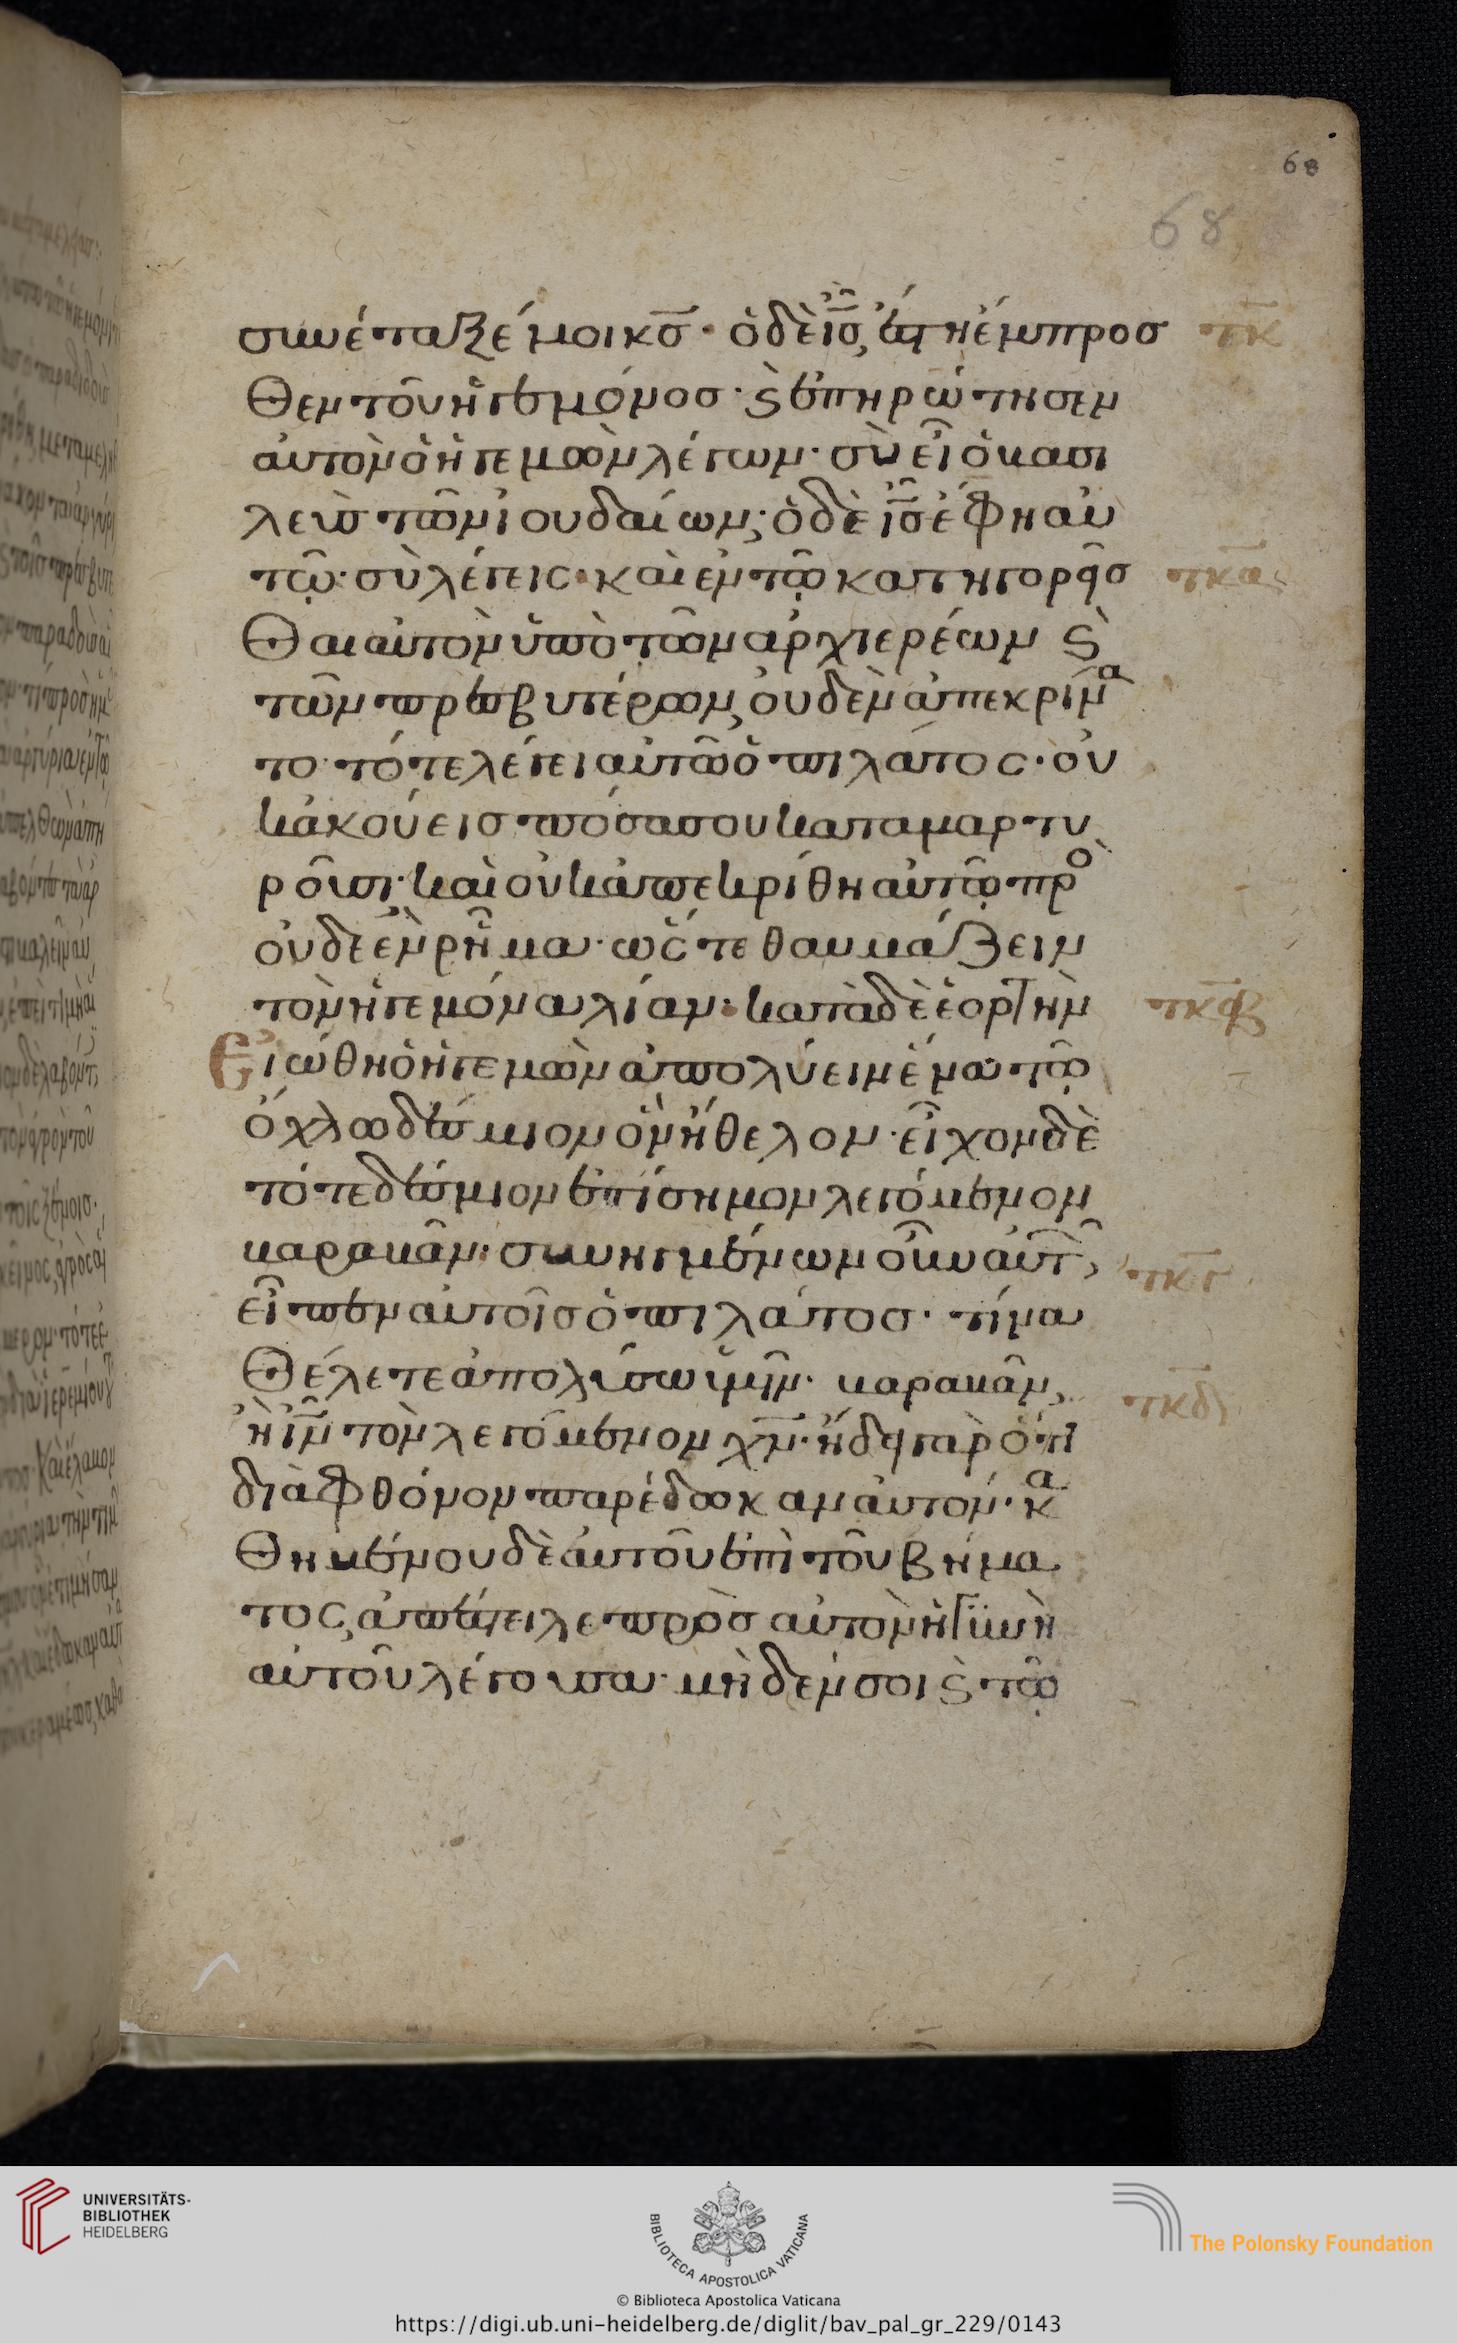 68
68
συνέταξέ μοι κς· ὁ δὲ ις ἔστη ἔμπροσ
τκ
θεν τοῦ ἡγεμόνος· ϛ ἐπηρώτησεν
αὐτὸν ὁ ἡγεμὼν λέγων· σὺ εἶ ὁ βασι
λεὺς τῶν ἰουδαίων· ὁ δὲ ις ἔφη αὐ
τῷ· σὺ λέγεις· καὶ ἐν τῷ κατηγορεῖσ
τκα
θαι αὐτὸν ὑπὸ τῶν ἀρχιερέων ϛ
τῶν πρεσβυτέρων, οὐδὲν ἀπεκρίνα
το· τότε λέγει αὐτῶ ὁ πιλάτος· οὐ
κ ἀκούεις πόσα σου καταμαρτυ
ροῦσι· καὶ οὐκ ἀπεκρίθη αὐτῷ πρὸ
οὐδὲ ἓν ῥῆμα· ὥστε θαυμάζειν
τὸν ἡγεμόνα λίαν· κατὰ δὲ ἑορτὴν
τκβ
Εἰώθη ὁ ἡγεμὼν ἀπολύειν ἕνα τῷ
ὄχλω δέσμιον ὃν ἤθελον· εἶχον δὲ
τότε δέσμιον ἐπίσημον λεγόμενον
βαραβᾶν· συνηγμένων οὖν αὐτῶν,
τκγ
εἶπεν αὐτοῖς ὁ πιλάτος· τίνα
θέλετε ἀπολύσω ὑμῖν· βαραβᾶν,
τκδ
ἢ ιν τὸν λεγόμενον χν· ἤδει γὰρ ὅτι
διὰ φθόνον παρέδωκαν αὐτόν· κα
θημένου δὲ αὐτοῦ ἐπὶ τοῦ βήμα
τος, ἀπέστειλε πρὸς αὐτὸν ἡ γυνὴ
αὐτοῦ λέγουσα· μηδέν σοι ϛ τῷ
UNIVERSITÄTS-
BIBLIOTHEK
HEIDELBERG
BIBLIOTECA APOSTOLICA VATICANA
The Polonsky Foundation
© Biblioteca Apostolica Vaticana
https://digi.ub.uni-heidelberg.de/diglit/bav_pal_gr_229/0143